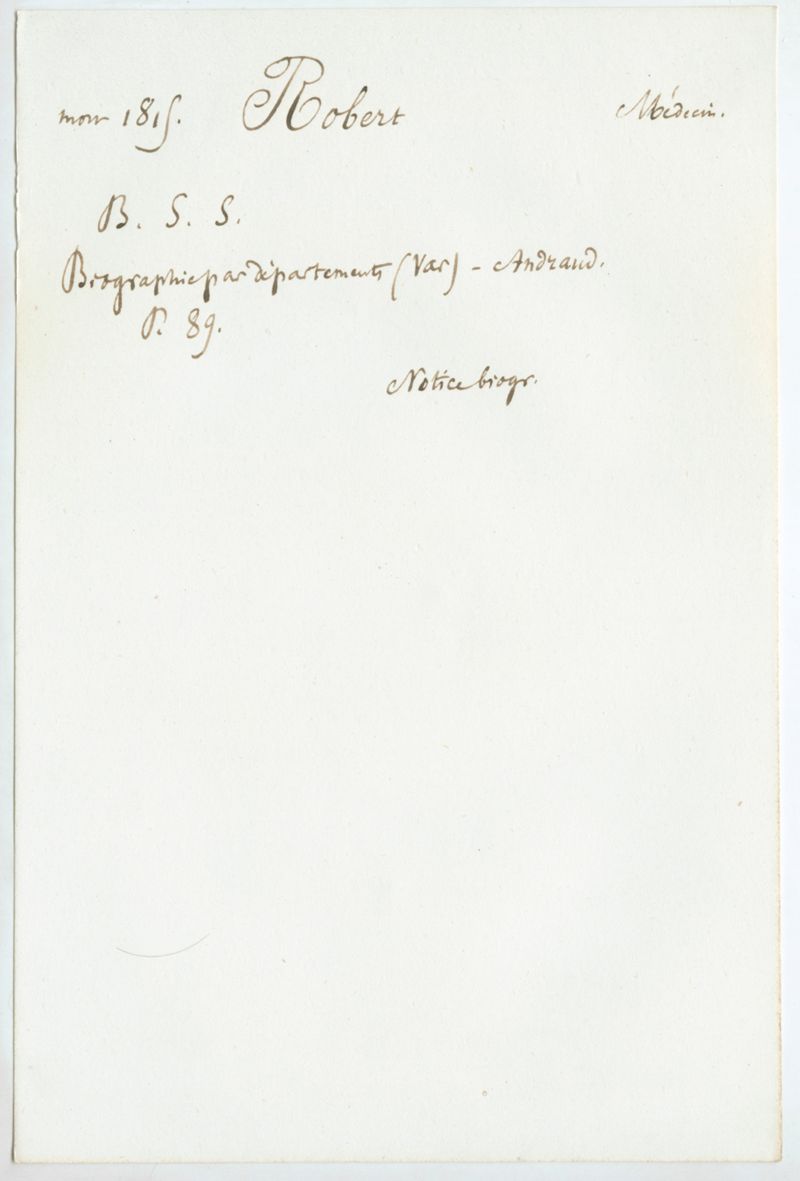 mort 1815. Robert Médecin.
B. S. S.
Biographie par départements (Var) - Andraud.
P. 89.
Notice biogr.